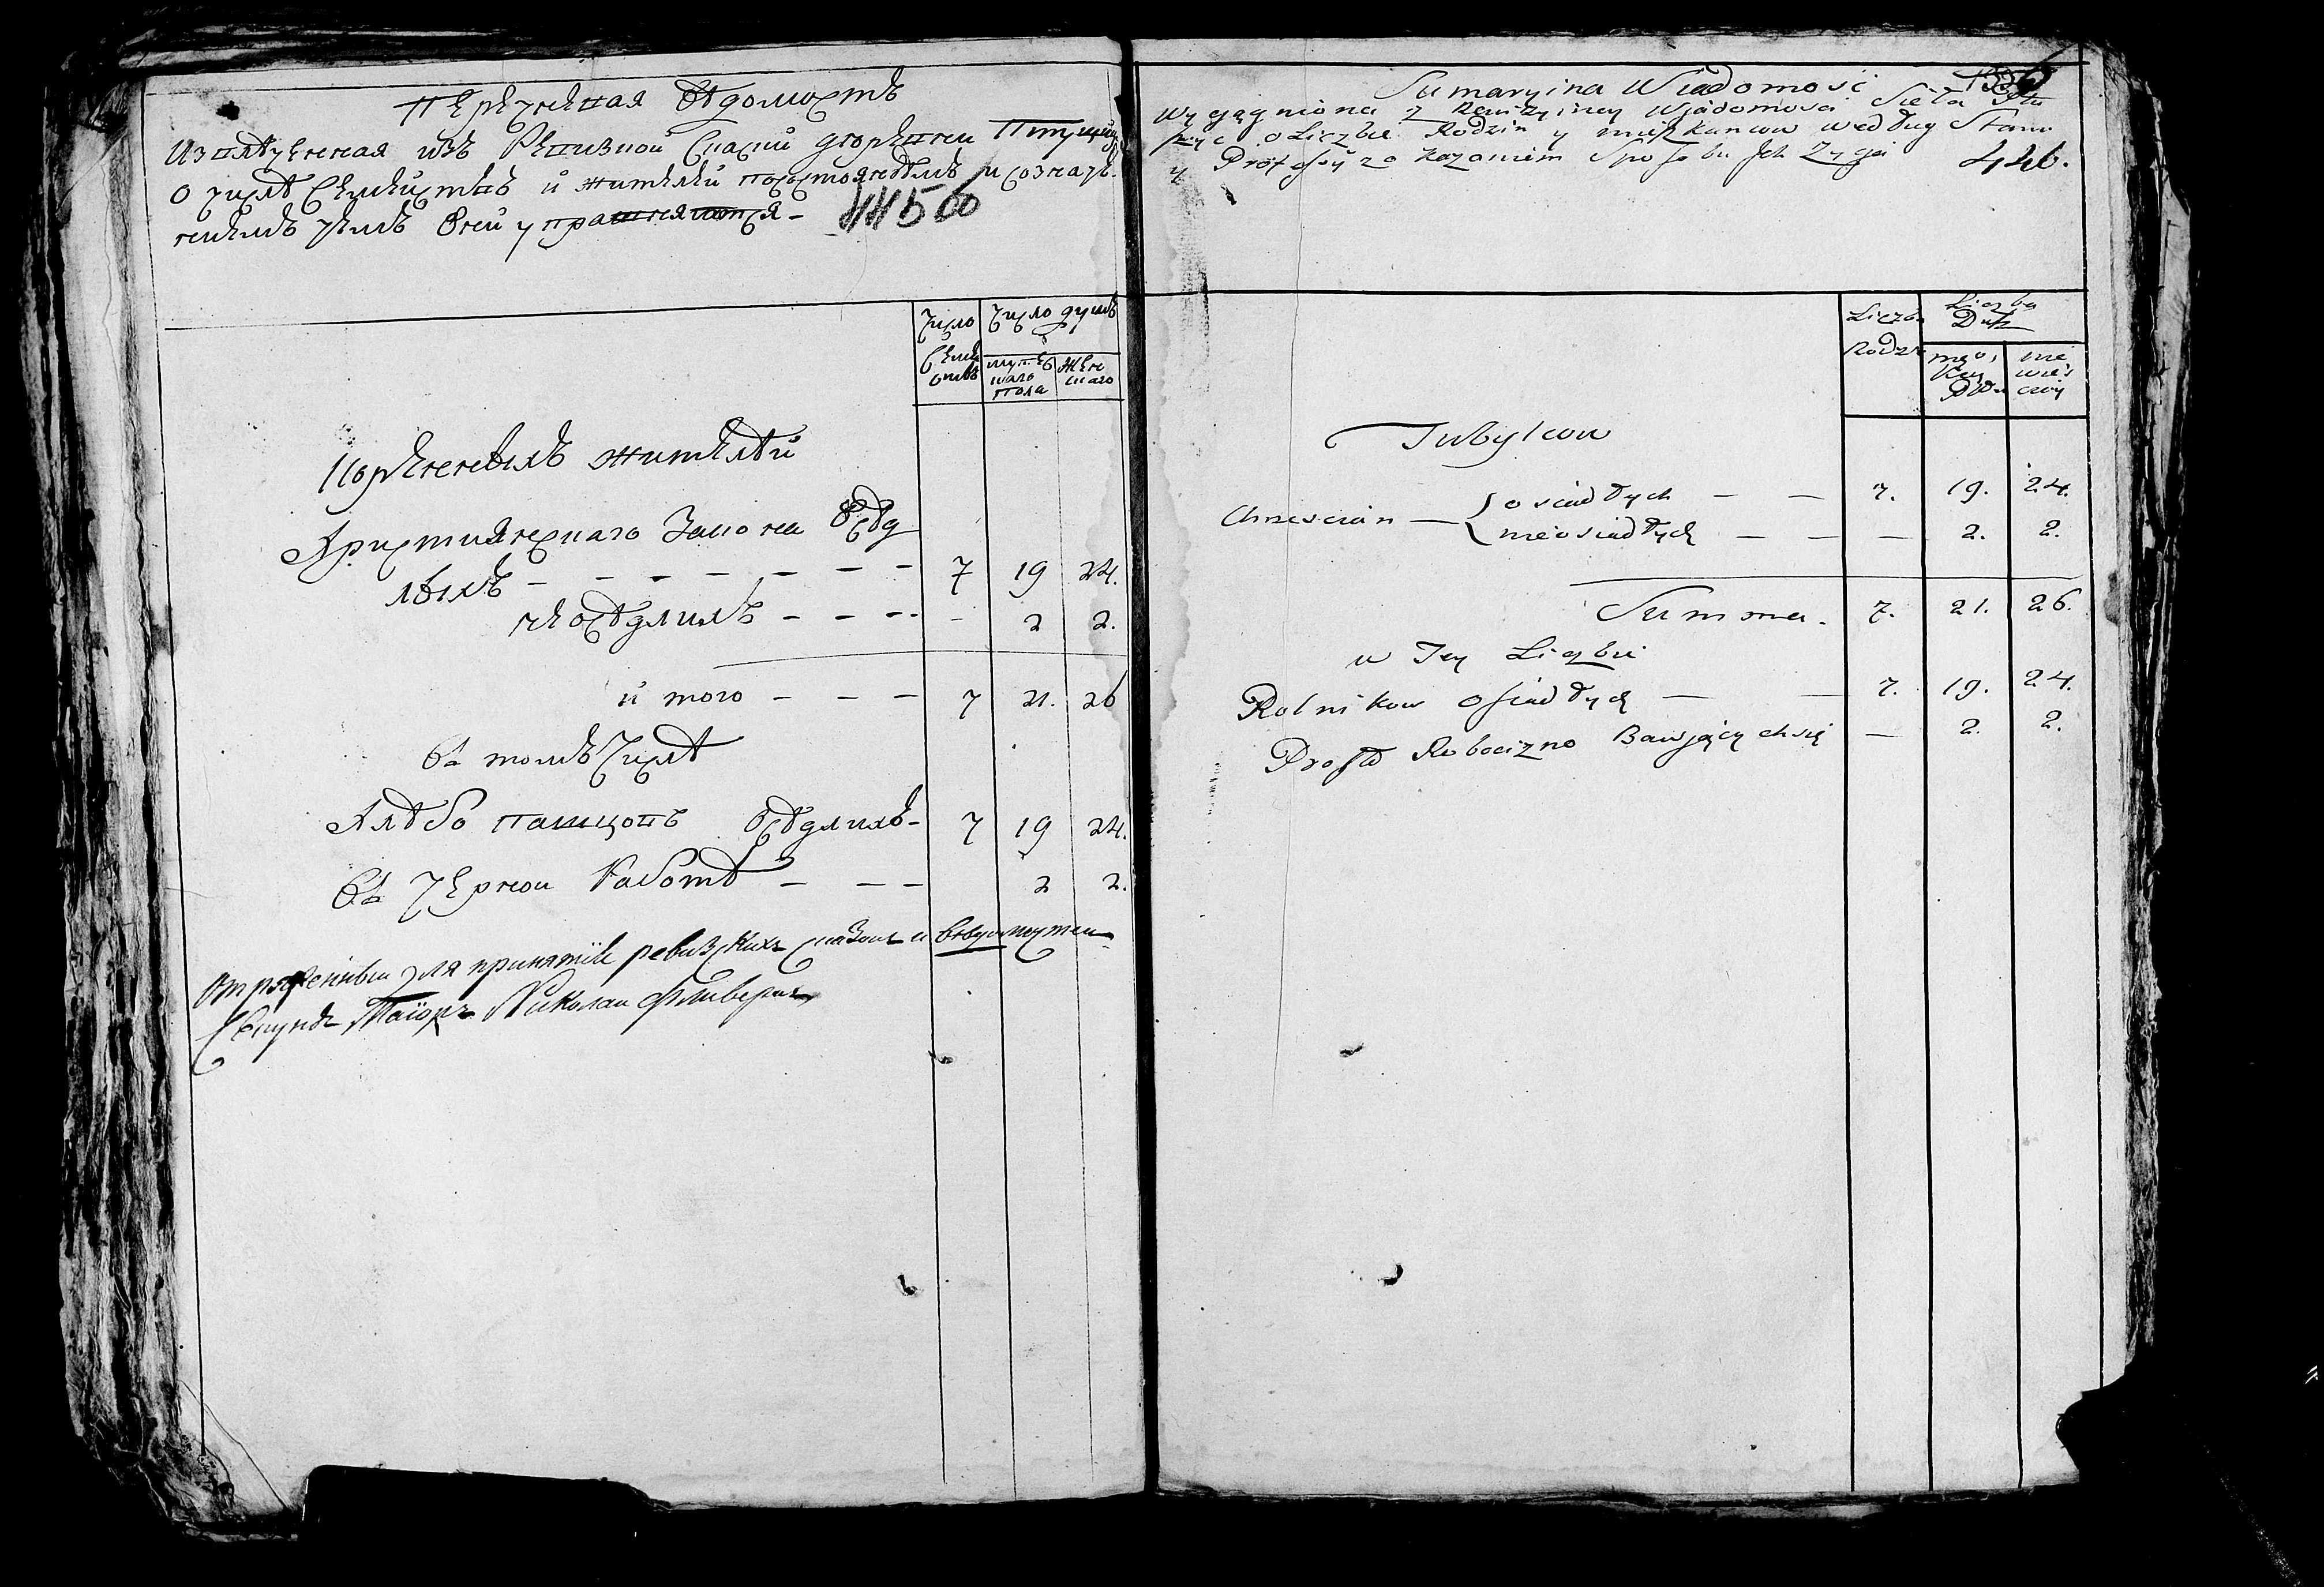 Перечневая вѣдомость
Извлеченная изъ Ревизкой Скаски деревни Птущиц
о числѣ Семействъ и жителей по состояніямъ и означе
ніемъ чемъ Оней упражняются -
Число Семействъ
Число душъ
мужескаго пола
женскаго
Коренныхъ жителѣй
Христианскаго Закона Осѣд
лыхъ - - - - - - - 7 19 24.
неосѣдлихъ - - - - - 2 2.
и того - - - 7 21. 26
Въ томъ Числѣ
Хлѣбо пашцовъ Осѣдлихъ - 7 19 24.
Въ Черной Работѣ - - - 2 2.
Отряженный для принятія ревизскихъ сказокъ
Секундъ Маіоръ Николай
Sumaryina Wiadomosc
Wyciągniona z Rewizyiney Wiadomosci Sieła Ptu
szyc o Liczbie Rodzin y mieszkancow według Stanu
y Profesyi zo kazaniem Sposobu Ich Zycia
446.
Liczba Rodzin
Liczba Dusz
Tubylcow
Chrzescian — { osiadłych — — 7. 19. 24.
nieosiadłych — — — 2. 2.
Summa. 7. 21. 26.
w Tey Liczbie
Rolnikow osiadłych — — 7. 19. 24.
Prosto Robocizno Bawjących się — 2. 2.